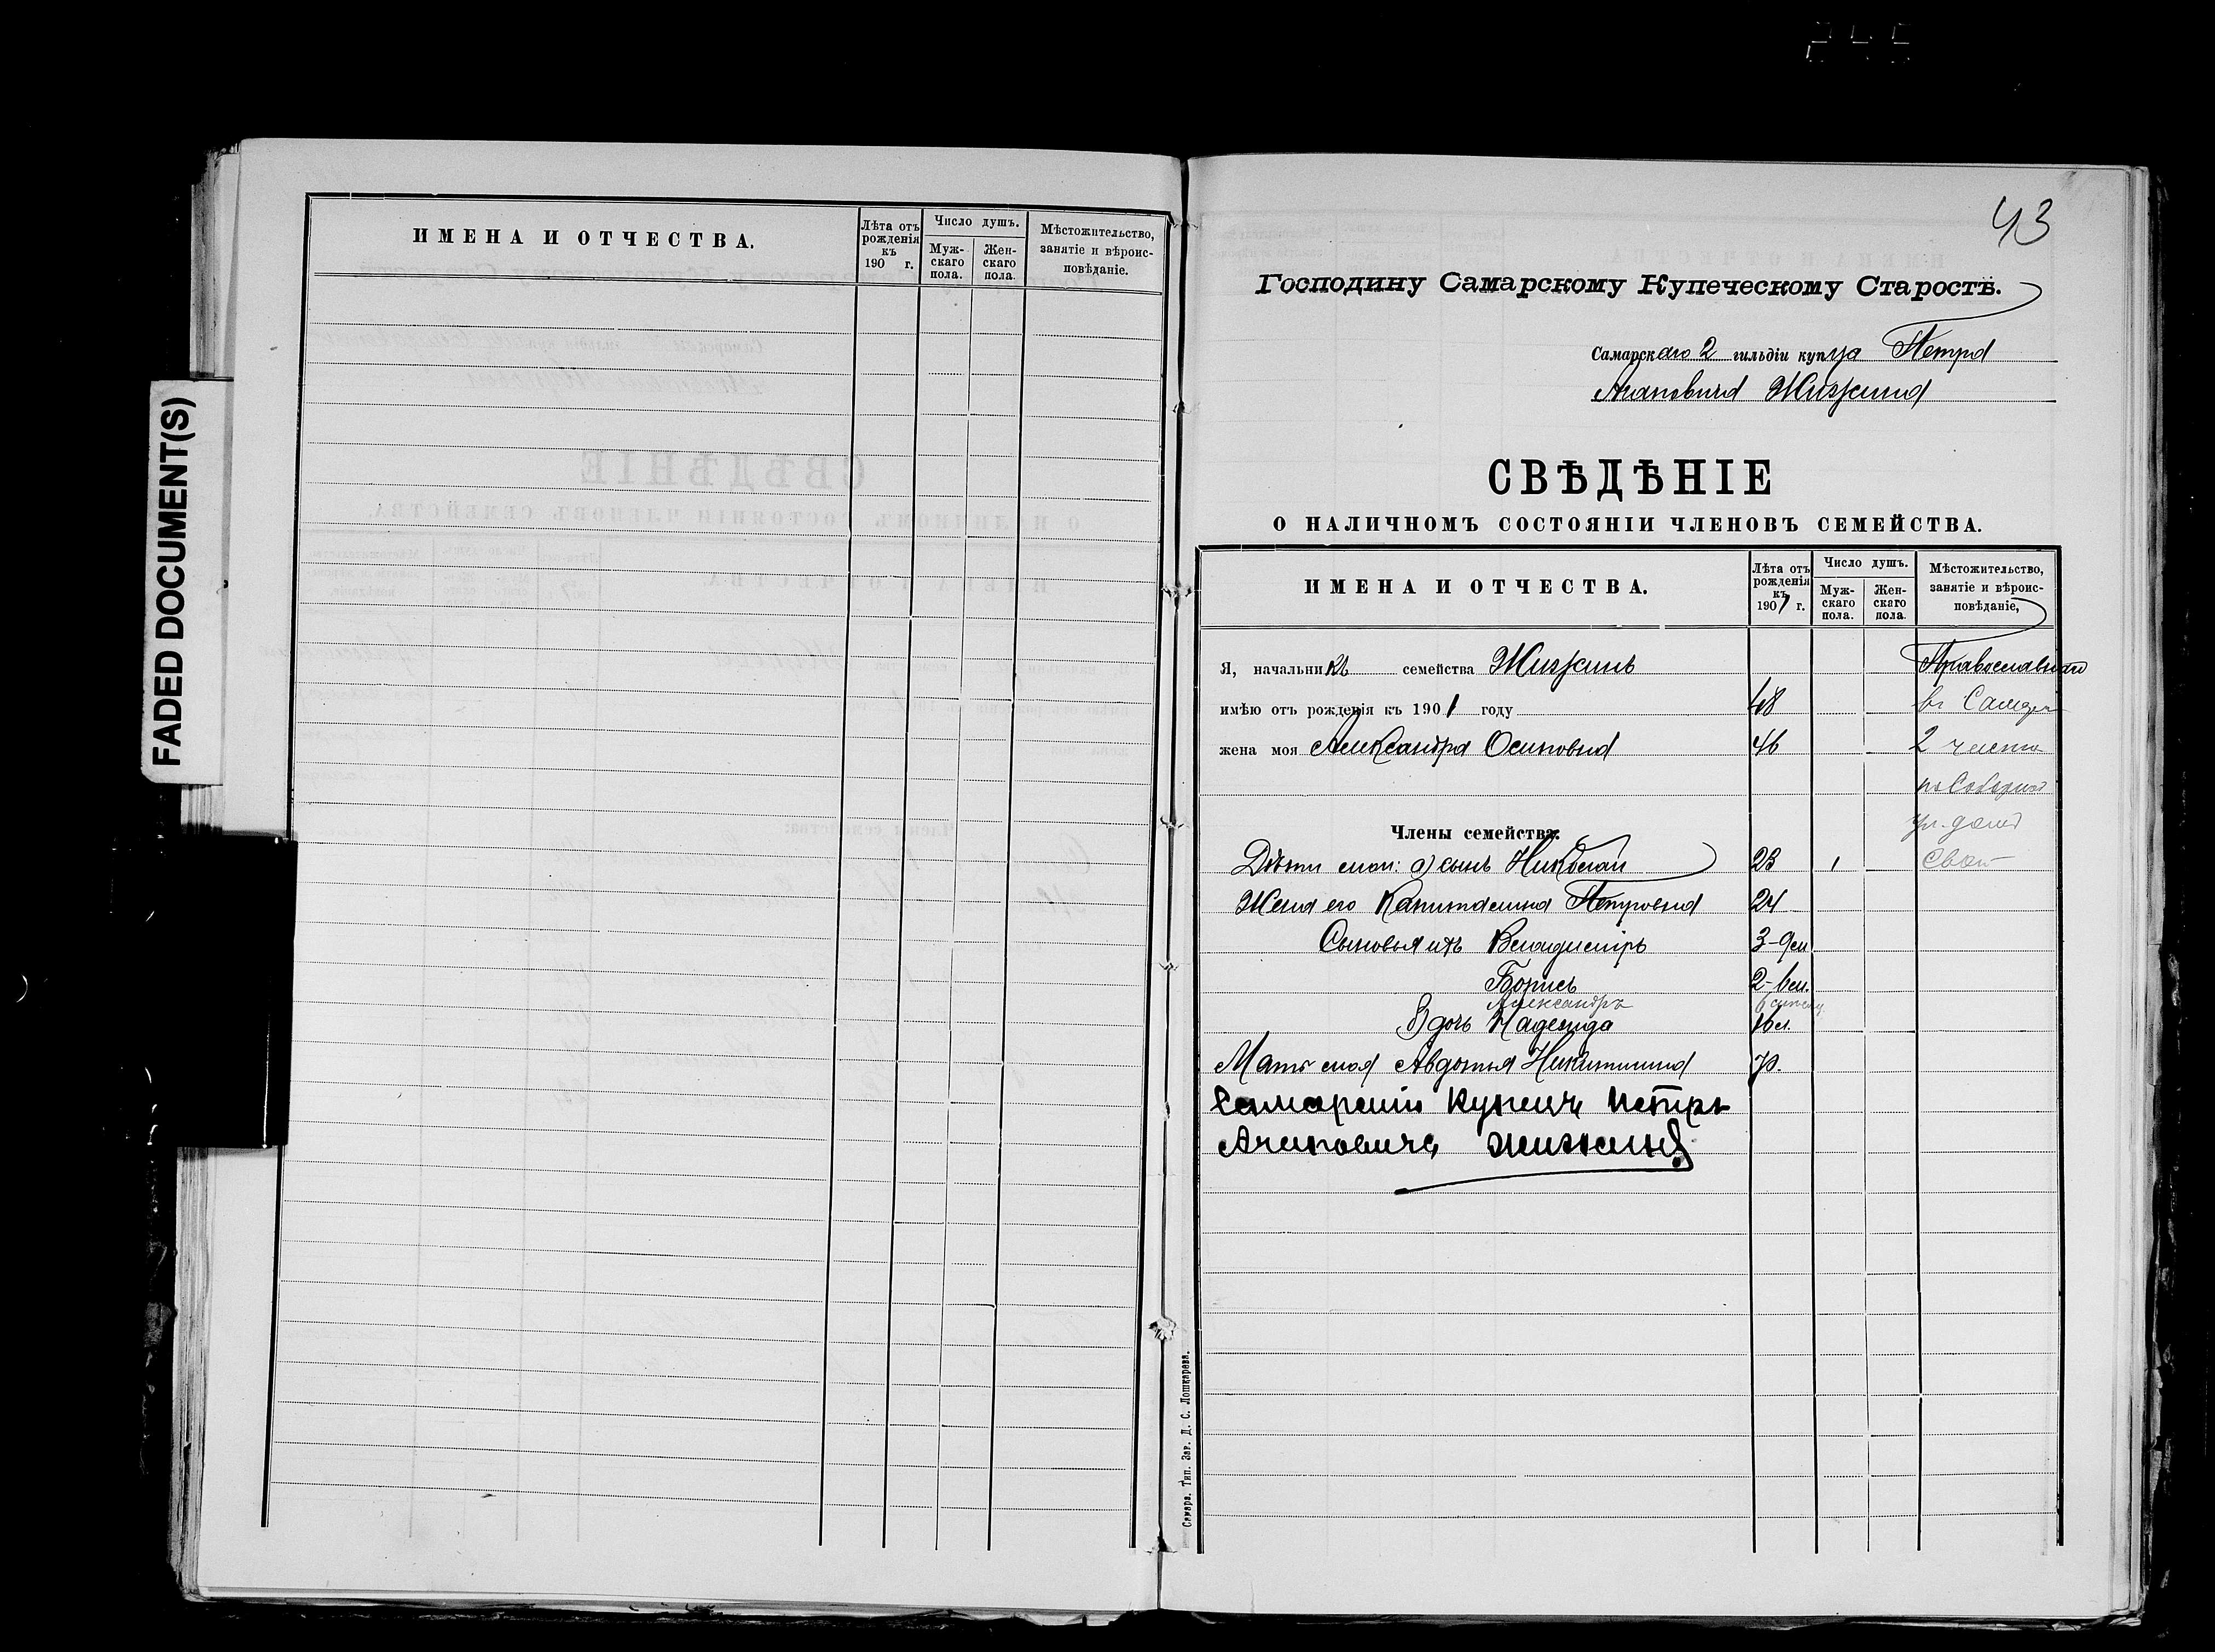 FADED DOCUMENT(S)
ИМЕНА И ОТЧЕСТВА.
Лѣта отъ рожденія къ 190 г.
Число душъ.
Мужскаго пола.
Женскаго пола.
Мѣстожительство, занятіе и вѣроисповѣданіе.
43
Господину Самарскому Купеческому Старостѣ.
Самарскаго 2 гильдіи купца Петра
Жижина
СВѢДѢНІЕ
О НАЛИЧНОМЪ СОСТОЯНІИ ЧЛЕНОВЪ СЕМЕЙСТВА.
ИМЕНА И ОТЧЕСТВА.
Лѣта отъ рожденія къ 1901 г.
Число душъ.
Мужскаго пола.
Женскаго пола.
Мѣстожительство, занятіе и вѣроисповѣданіе,
Я, начальникъ семейства Жижинъ Православнаго
имѣю отъ рожденія къ 1901 году 48 въ Самарѣ
жена моя Александра Осиповна 46 2 части
по Соборной
ул. домъ
Члены семейства:
Дѣти мои: а) сынъ Николай 23 1 свой
Жена его Капиталина Петровна 24
Сыновья ихъ Владиміръ 3-9 м.
Борисъ 2-
Александръ
дочь Надежда
Мать моя Авдотья Никитишна 70.
Самарскій Купецъ Петръ
Жижинъ
Самара. Тип. Зав. Д. С. Лошкарева.